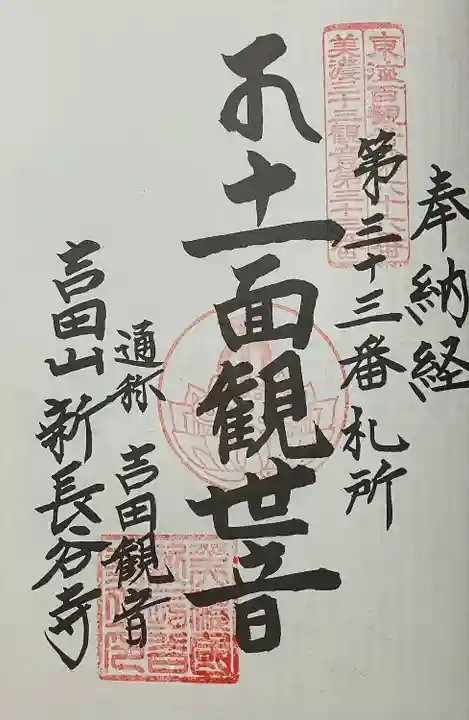 奉納経
東海百観音
美濃三十三観音第三十三番
第三十三番札所
十一面観世音
通称 吉田観音
吉田山 新長谷寺